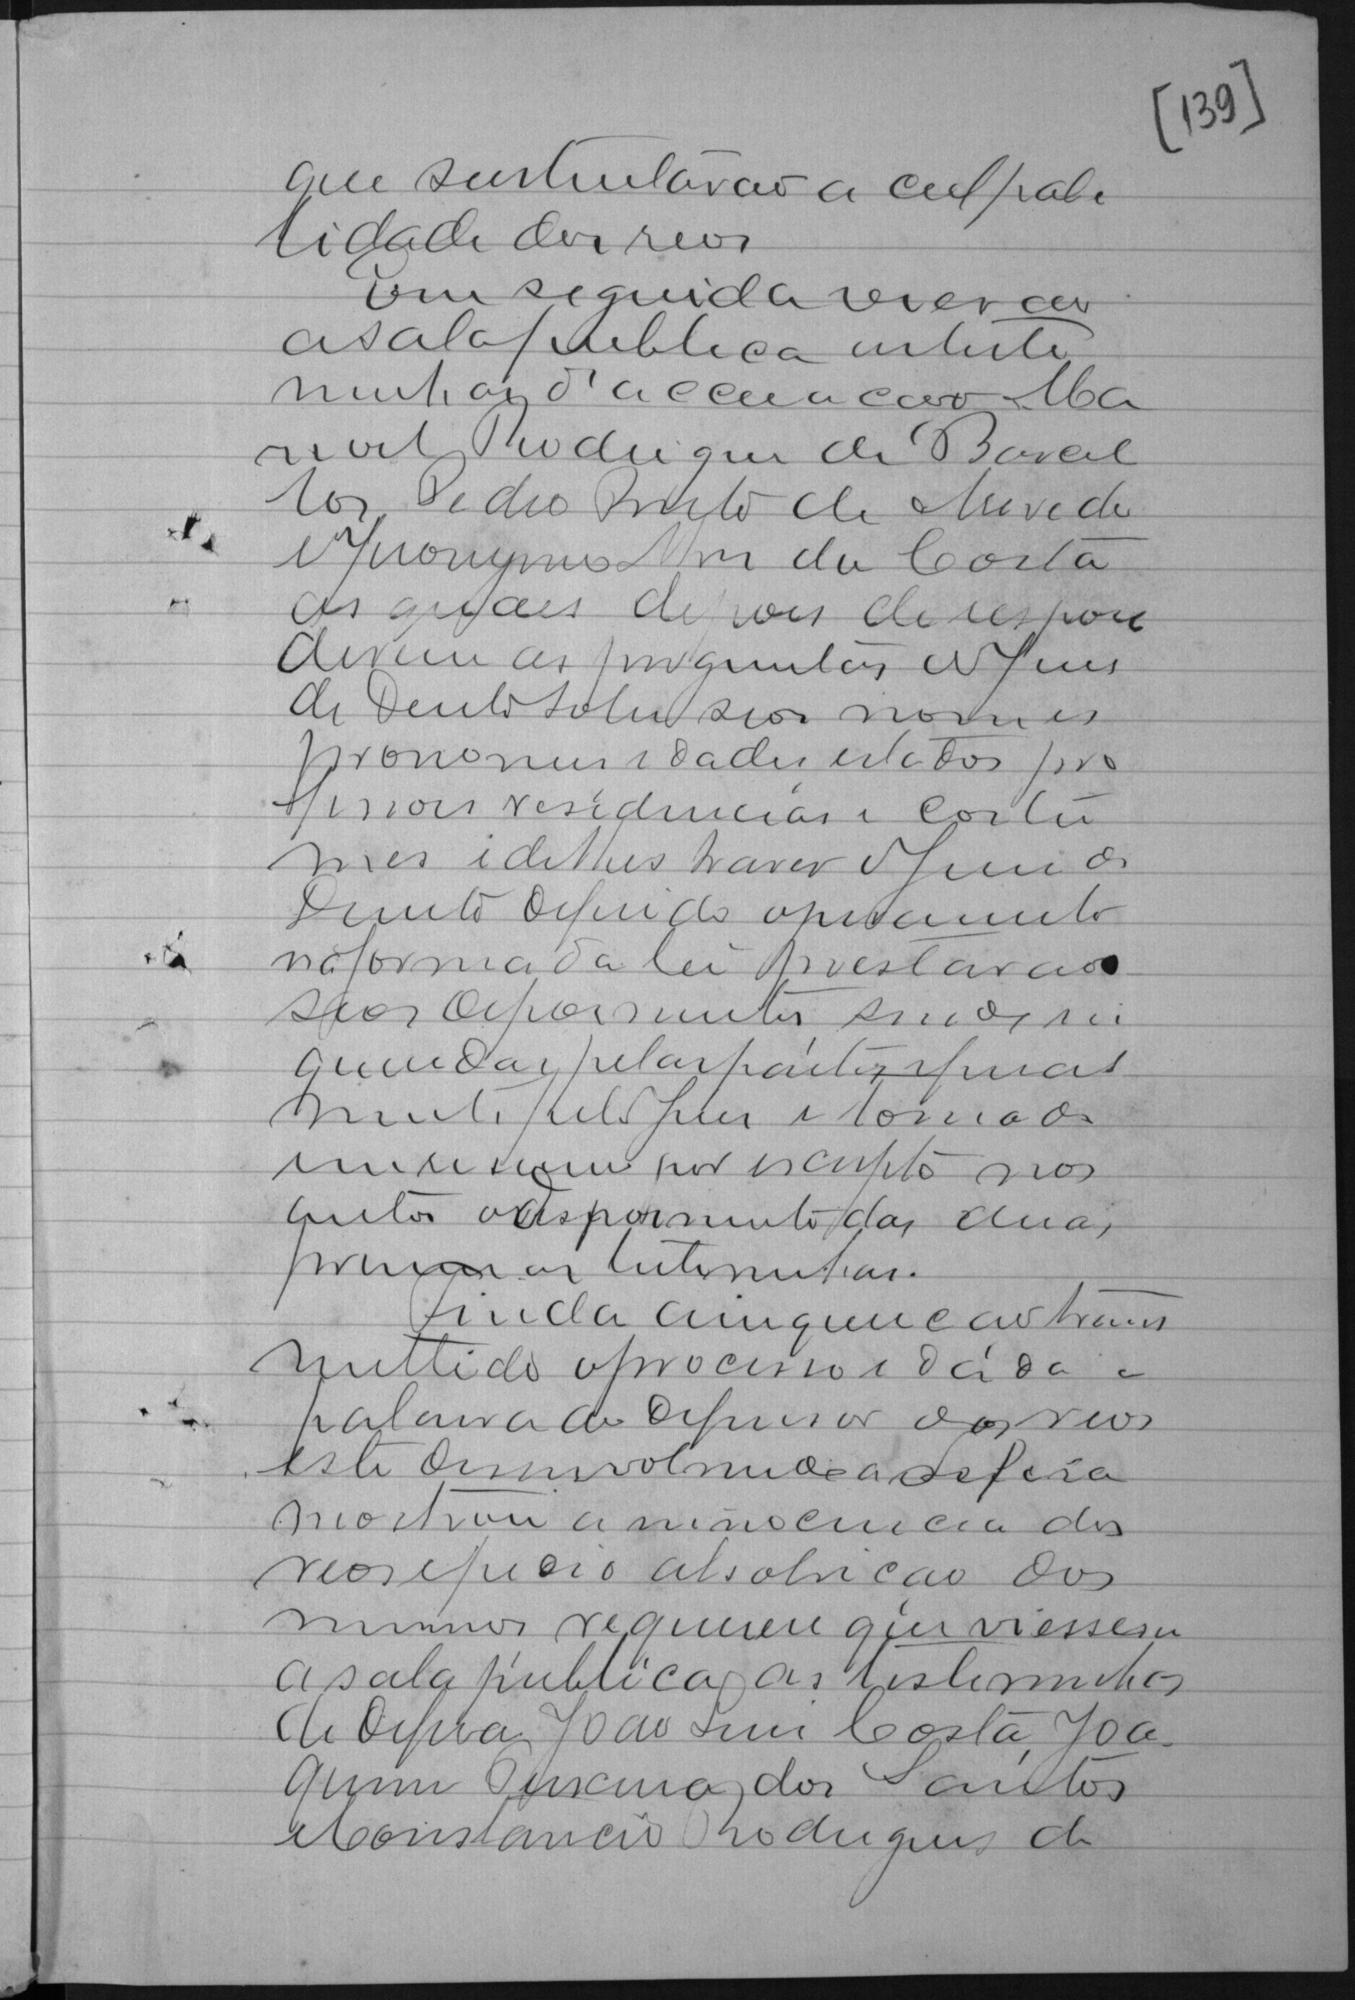 [139]
que sustentárão a culpabi
lidade dos reos
Em seguida vierão
a sala publica as teste
munhas d'accusacão Ma
noel Rodrigues de Vascel
los, Pedro Pinto de Azevedo
e Jeronymo da Costa
as quaes depois de respon
derem as perguntas do Juis
de Direito sobre seos nomes
pronomes idades estados pro
fissoes residencias e costu
mes e de lhes haver o Juis de
Direito deferido o juramento
na forma da lei prestarão
seos depoimentos sendo in
queridas pelas partes e final
mente pelo Juis e tomado
em resumo por escripto nos
autos o depoimento das duas
primeiras testemunhas.
Finda a inquiricão trans
mettido o processo e dáda a
palavra ao defensor dos reos
este desenvolvendo a defesa
mostrou a innocencia dos
reos e pedio absolvicao dos
mesmos requereu que viessem
a sala publica as testemunhas
de defesa João Luis Costa, Joa
quim dos Santos
e Constancio Rodrigues de